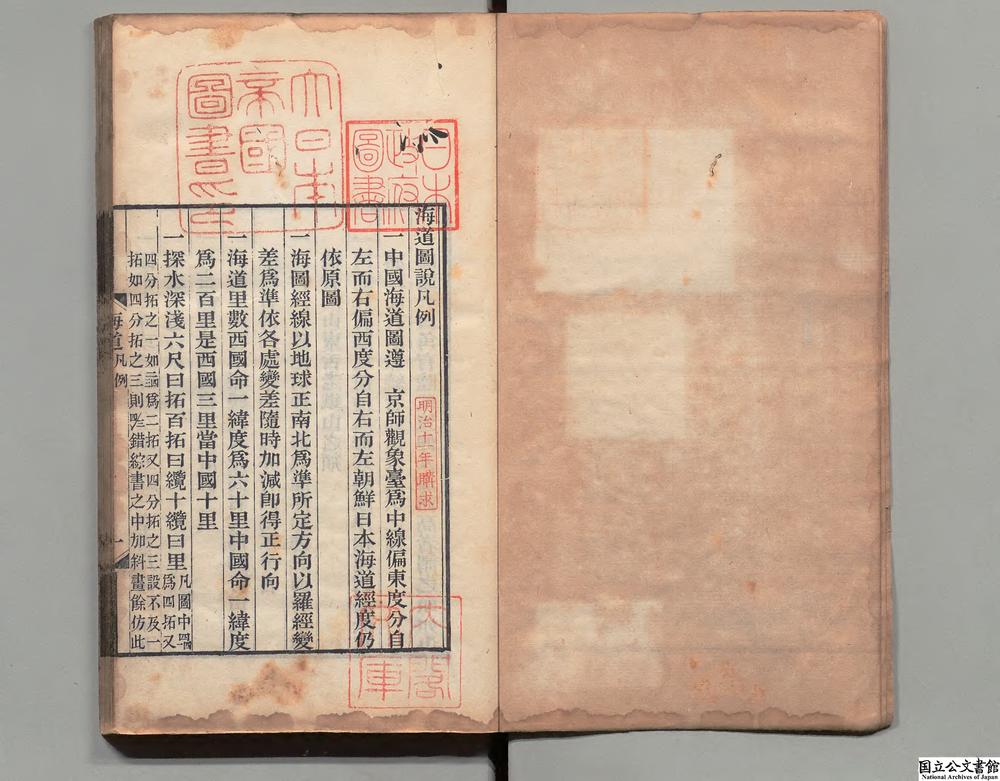 大日本
帝國
圖書印
日本
政府
圖書
海道圖說凡例
明治十一年購求
一中國海道圖遵　京師觀象臺爲中線偏東度分自
左而右偏西度分自右而左朝鮮日本海道經度仍
依原圖
一海圖經線以地球正南北爲準所定方向以羅經變
差爲準依各處變差隨時加減卽得正行向
一海道里數西國命一緯度爲六十里中國命一緯度
爲二百里是西國三里當中國十里
一探水深淺六尺曰拓百拓曰纜十纜曰里凡圖中
爲四拓又
四分拓之一如爲二拓又四分拓之三設不及一
拓如四分拓之三則錯綜書之中加斜畫餘仿此
海道 凡例 一
文庫
国立公文書館
National Archives of Japan